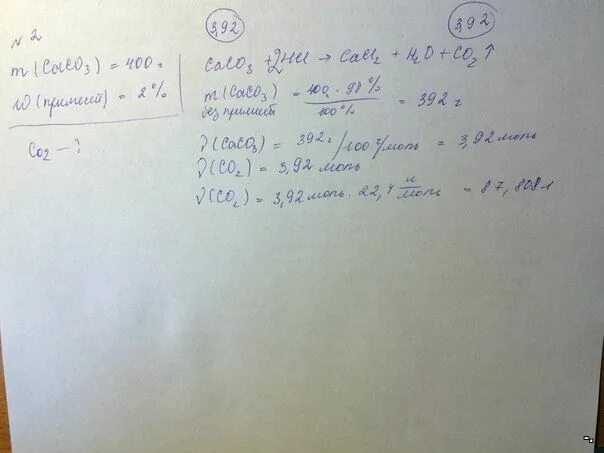 3,92 3,92
N 2
m (CaCO₃) = 400 г
w (примесей) = 2 %
CO₂ – ?
CaCO₃ + 2HCl → CaCl₂ + H₂O + CO₂ ↑
m (CaCO₃) без примесей = 400 · 98 % / 100 % = 392 г
ν (CaCO₃) = 392 г / 100 г/моль = 3,92 моль
ν (CO₂) = 3,92 моль
ν (CO₂) = 3,92 моль · 22,4 л/моль = 87,808 л